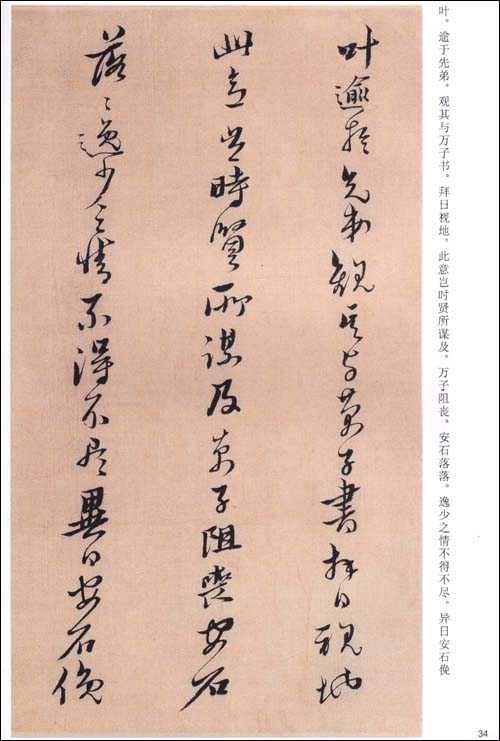 叶逾於先弟觀其与万子書拜日視地
此意豈時賢所謀及萬子阻喪安石
落〻逸少之情不得不尽異日安石俛
叶。逾于先弟。观其与万子书。拜日视地。此意岂时贤所谋及。万子阻丧。安石落落。逸少之情不得不尽。异日安石俛
34